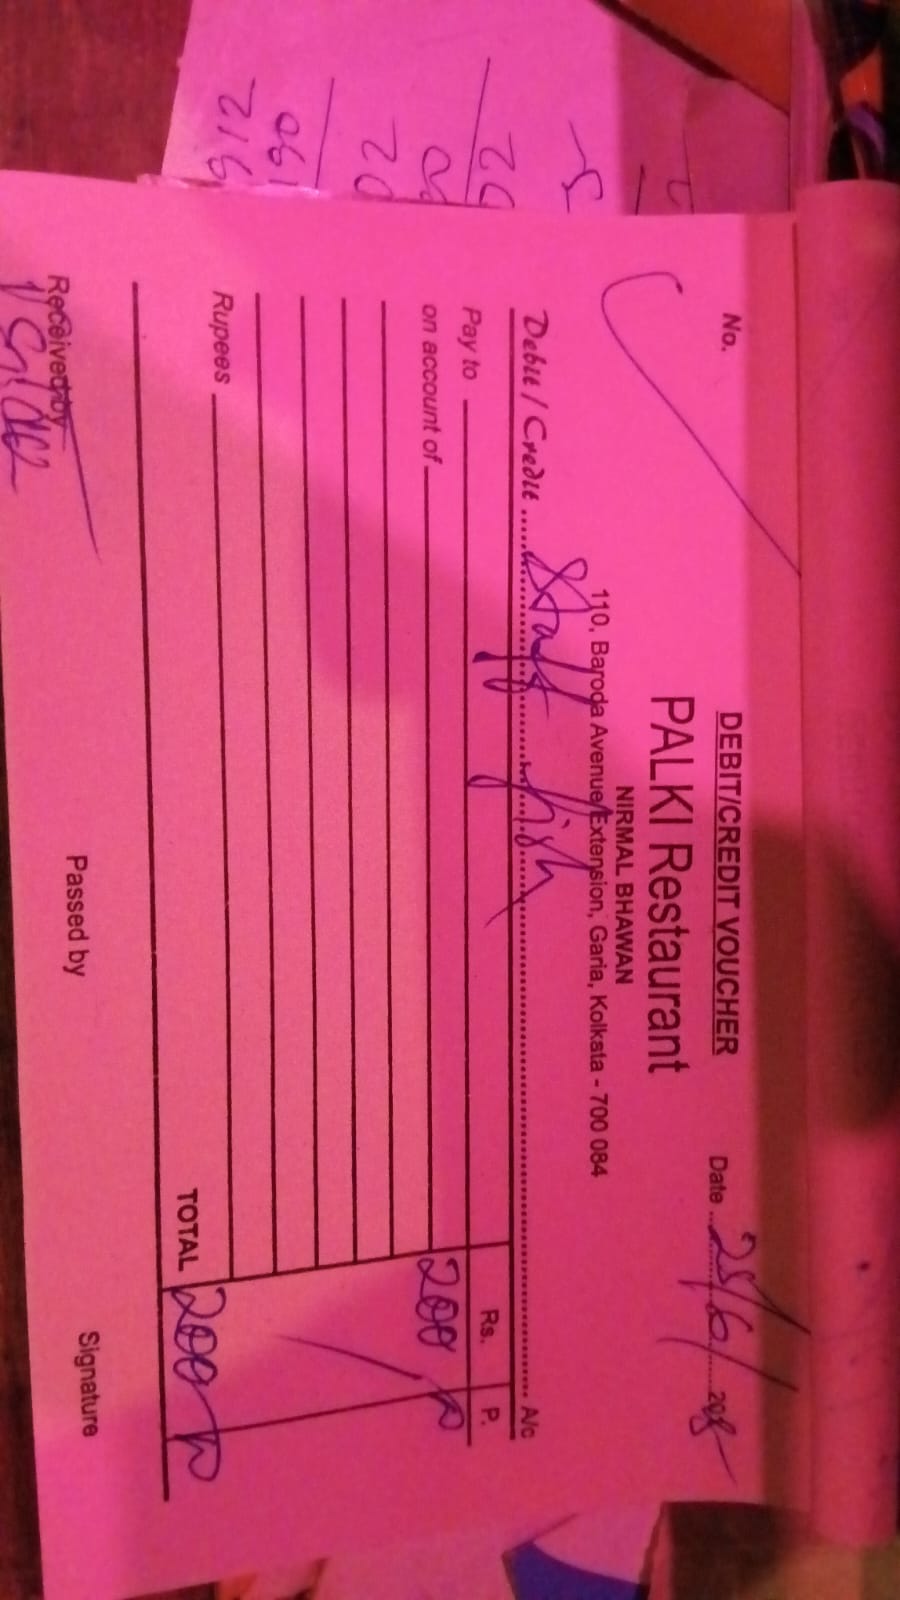 No.
DEBIT/CREDIT VOUCHER
Date 25/6/
PALKI Restaurant
NIRMAL BHAWAN
110, Baroda Avenue Extension, Garia, Kolkata - 700 084
Debit / Credit Staff fish A/c
Pay to Rs. P.
on account of 200
Rupees
TOTAL 200
Received by Passed by Signature